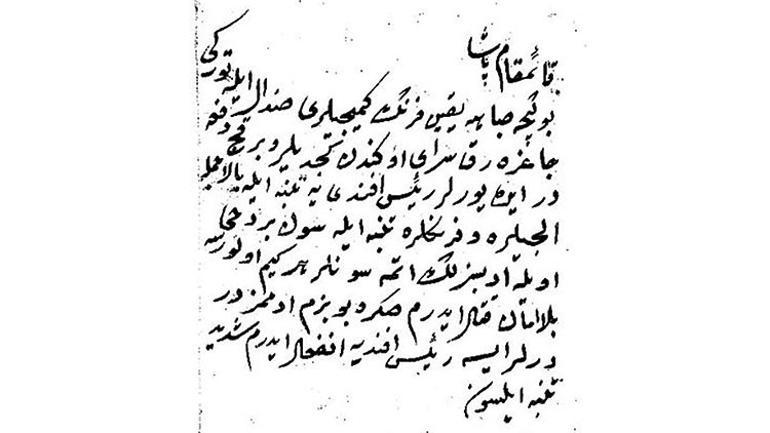 قائممقام پاشا
بو گیجه صباحه یقین فرنك كمیجیلری صندال ایله توركی
چاغره رق سرای اوكندن گچدیلر و بر قچ دفعه
در ایدیورلر رئیس افندی یه تنبیه ایله بالجمله
ایلچیلره و فرنكلره تنبیه ایله سون بر دخی
اویله ادبسزلك ائتمه سونلر هر كیم اولورسه
بلا امان قتل ایدرم صكره بو بزم ادممزدر
درلر ایسه رئیس افندیه انفعال ایدرم شدید
تنبیه ایلسون